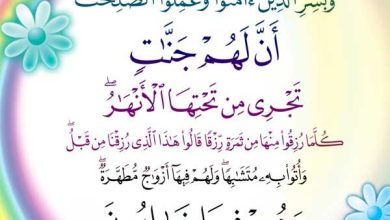 وَبَشِّرِ ٱلَّذِينَ ءَامَنُوا۟ وَعَمِلُوا۟ ٱلصَّٰلِحَٰتِ
أَنَّ لَهُمْ جَنَّٰتٍ
تَجْرِى مِن تَحْتِهَا ٱلْأَنْهَٰرُ ۖ
كُلَّمَا رُزِقُوا۟ مِنْهَا مِن ثَمَرَةٍ رِّزْقًا قَالُوا۟ هَٰذَا ٱلَّذِى رُزِقْنَا مِن قَبْلُ ۖ
وَأُتُوا۟ بِهِۦ مُتَشَٰبِهًا ۖ وَلَهُمْ فِيهَآ أَزْوَٰجٌ مُّطَهَّرَةٌ ۖ